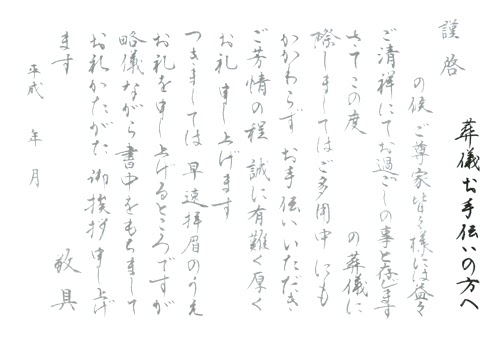 葬儀お手伝いの方へ
謹啓
の候 ご尊家皆々様には益々
ご清祥にてお過ごしの事と存じます
さてこの度 の葬儀に
際しましてはご多用中にも
かかわらず お手伝いいただき
ご芳情の程 誠に有難く厚く
お礼申し上げます
つきましては 早速拝眉のうえ
お礼を申し上げるところですが
略儀ながら 書中をもちまして
お礼かたがた 御挨拶申し上げ
ます
敬具
平成 年 月